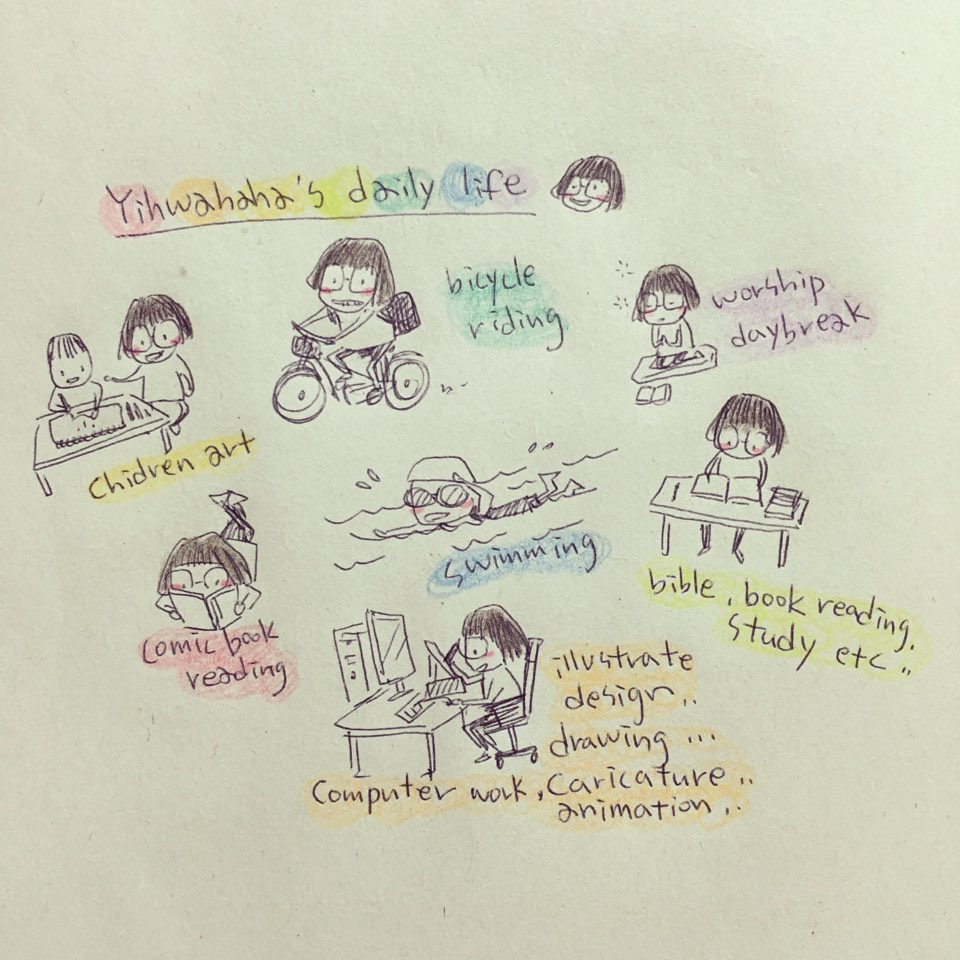 Yihwahaha's daily life
bicycle
riding
worship
daybreak
chidren art
swimming
bible, book reading,
study etc..
comic book
reading
illustrate
design..
drawing ...
computer work, caricature..
animation..